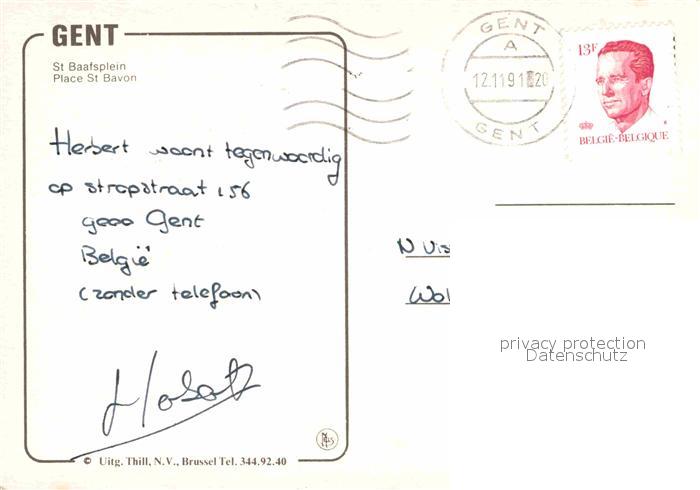 GENT
St Baafsplein
Place St Bavon
GENT
A
12.11.91
20
GENT
13F
BELGIË-BELGIQUE
Herbert woont tegenwoordig
op stropstraat 156
9000 Gent
België
(zonder telefoon)
N Vis
Wol
privacy protection
Datenschutz
© Uitg. Thill, N.V., Brussel Tel. 344.92.40